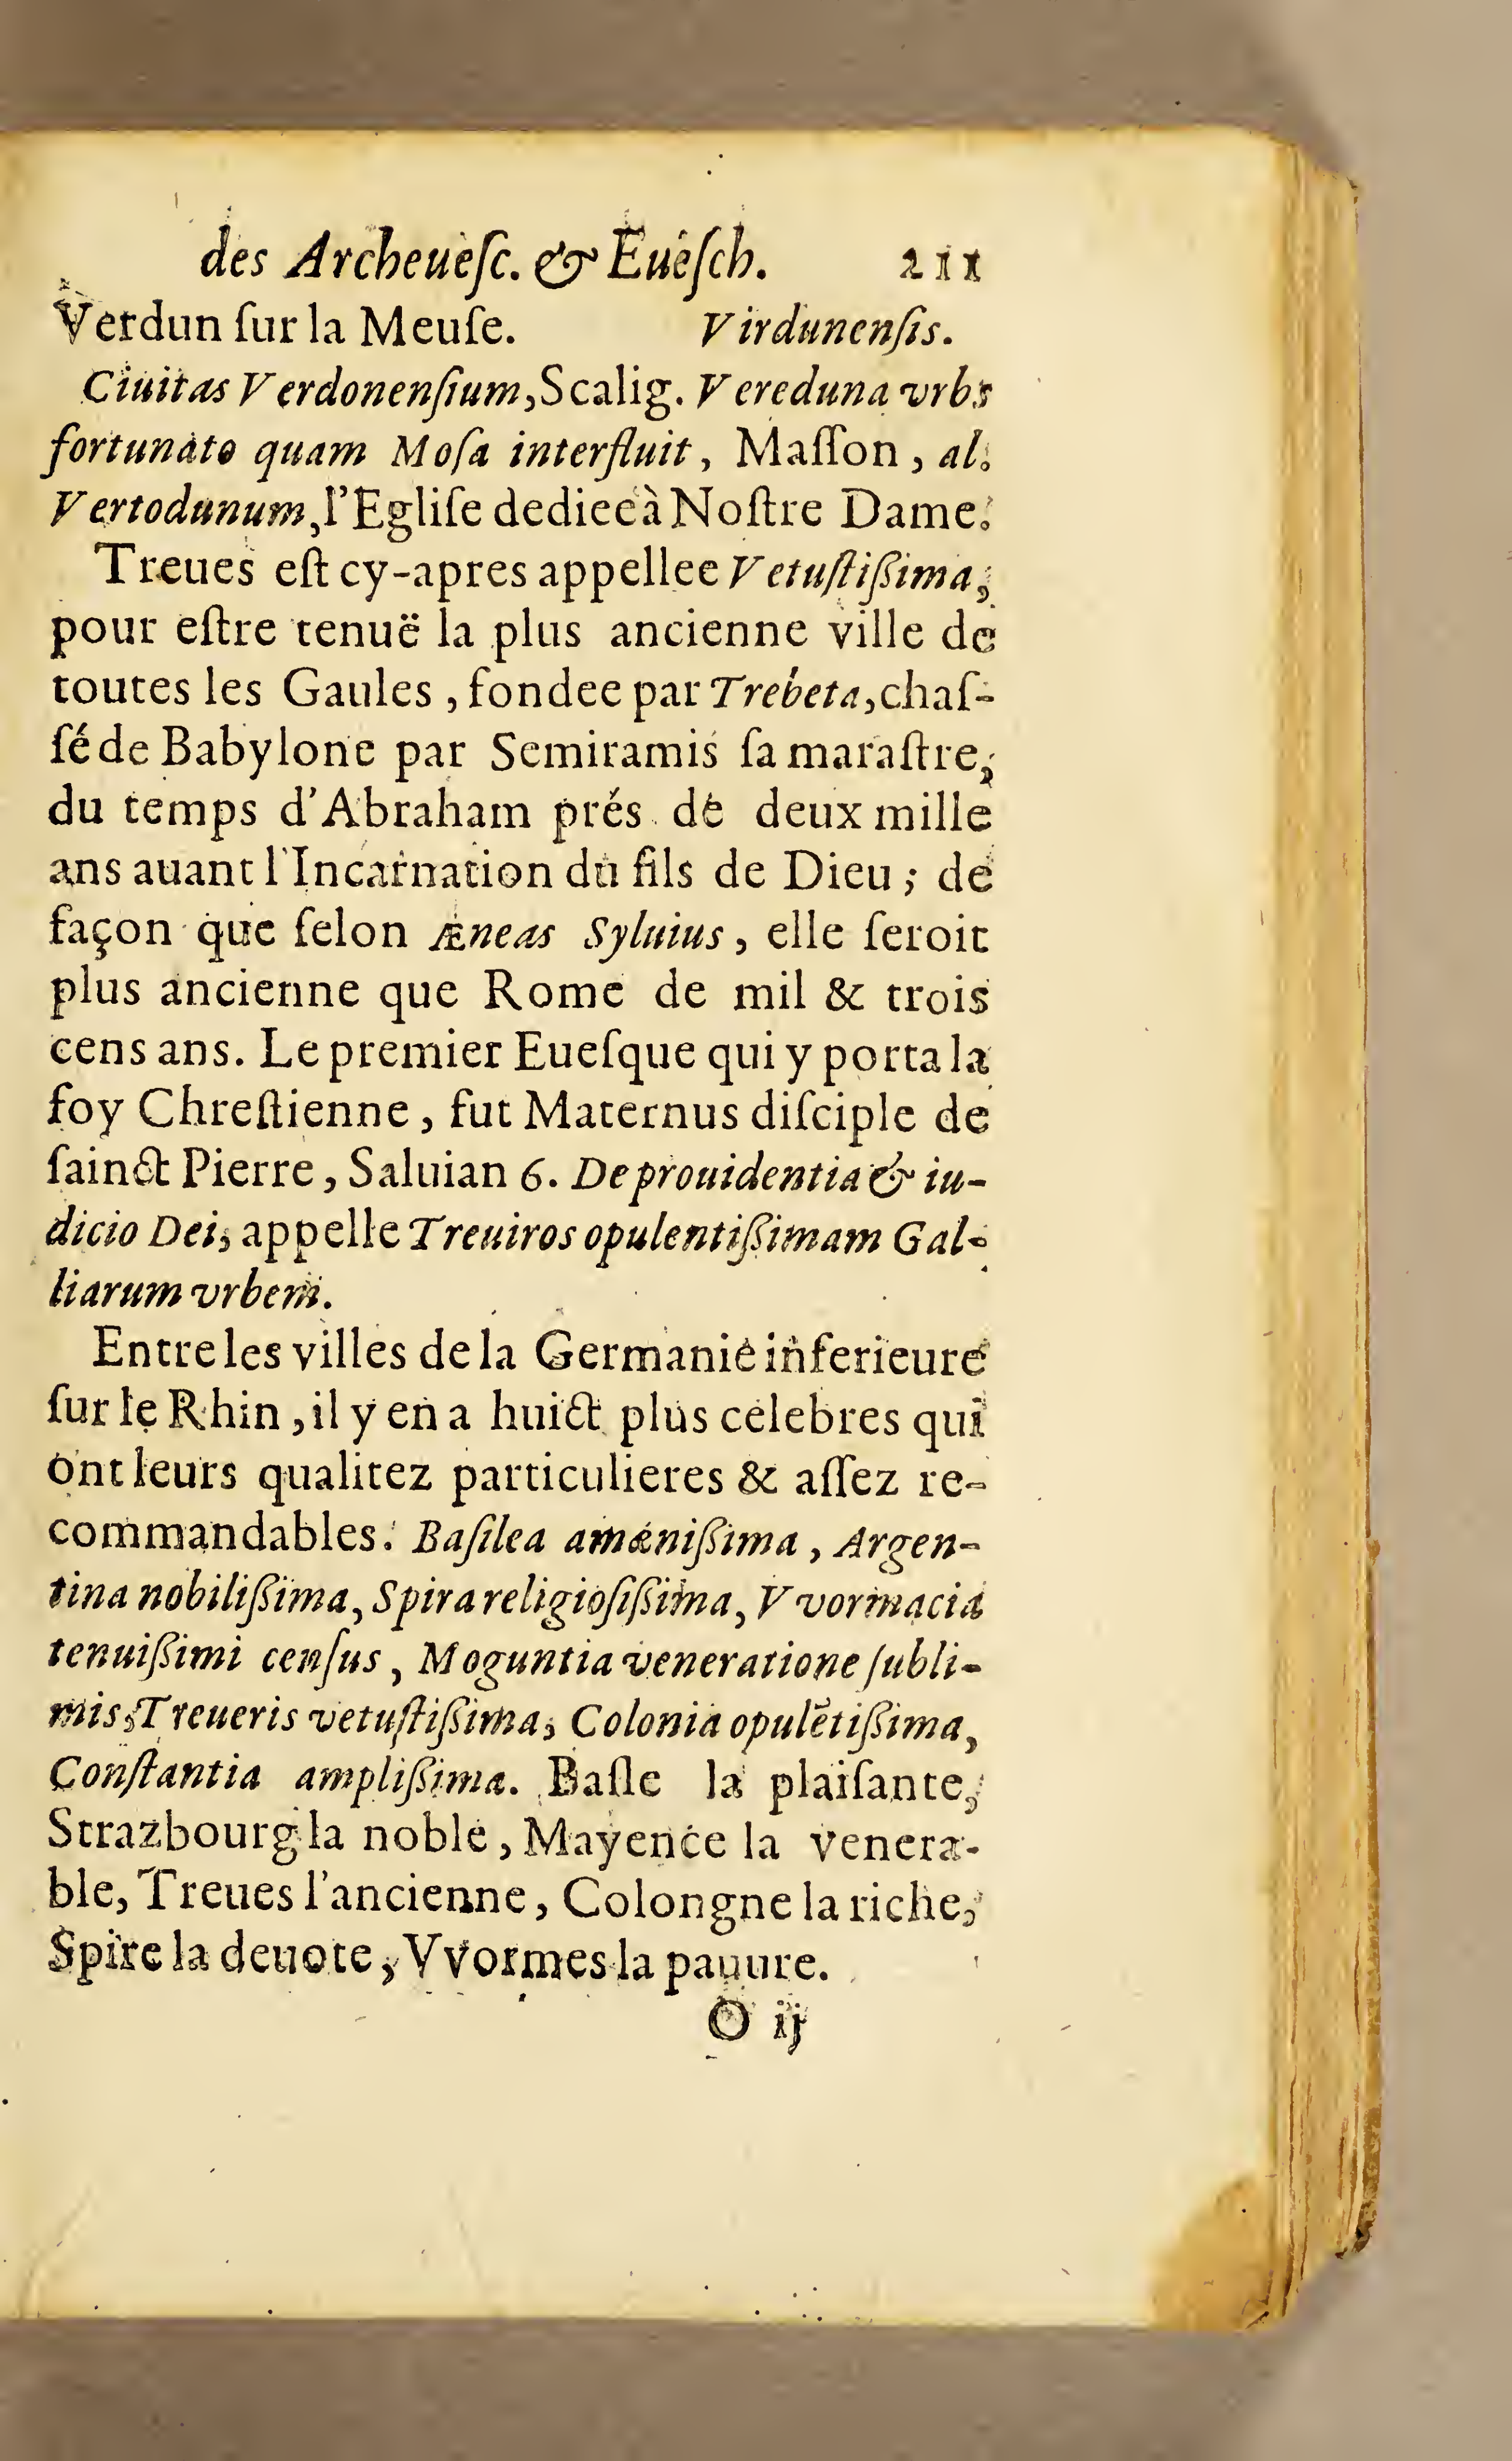 des Archeueſc. & Eueſch. 211
Verdun ſur la Meuſe. Virdunenſis.
Ciuitas Verdonenſium, Scalig. Vereduna vrbs
fortunato quam Moſa interfluit, Maſſon, al.
Vertodunum, l'Egliſe dediee à Noſtre Dame.
Treues eſt cy-apres appellee Vetuſtiſsima,
pour eſtre tenuë la plus ancienne ville de
toutes les Gaules, fondee par Trebeta, chaſ-
ſé de Babylone par Semiramis ſa maraſtre,
du temps d'Abraham prés de deux mille
ans auant l'Incarnation du fils de Dieu; de
façon que ſelon Æneas Syluius, elle ſeroit
plus ancienne que Rome de mil & trois
cens ans. Le premier Eueſque qui y porta la
foy Chreſtienne, fut Maternus diſciple de
ſainct Pierre, Saluian 6. De prouidentia & iu-
dicio Dei, appelle Treuiros opulentiſsimam Gal-
liarum vrbem.
Entre les villes de la Germanie inferieure
ſur le Rhin, il y en a huict plus celebres qui
ont leurs qualitez particulieres & aſſez re-
commandables. Baſilea amœniſsima, Argen-
tina nobiliſsima, Spira religioſiſsima, Vvormacia
tenuiſsimi cenſus, Moguntia veneratione ſubli-
mis, Treueris vetuſtiſsima, Colonia opulētiſsima,
Conſtantia ampliſsima. Baſle la plaiſante,
Strazbourg la noble, Mayence la venera-
ble, Treues l'ancienne, Colongne la riche,
Spire la deuote, Vvormes la pauure.
O ij